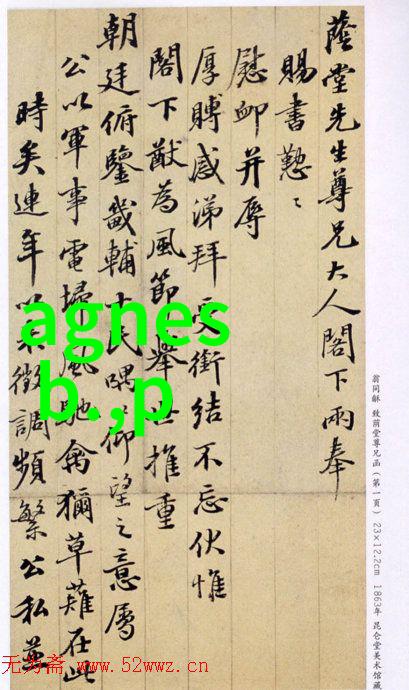 蔭堂先生尊兄大人閣下兩奉
賜書懃〻
慰卹并辱
厚賻感涕拜受銜結不忘伏惟
閣下猷為風節舉世推重
朝廷俯鑒畿輔士民喁〻仰望之意屬
公以軍事電掃風馳禽獮草薙在此
時矣連年以來徵調頻繁公私並
翁同龢 致荫堂尊兄函（第一页） 23×12.2cm 1863年 昆仑堂美术馆藏
agnes
b.,p
无为斋 www.52wwz.cn